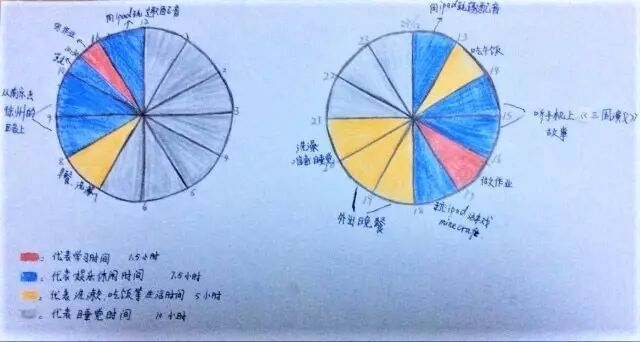 用ipad玩趣配音
12
1
2
3
4
5
6
7
8
9
10
11
从南京去
徐州的
路上
早餐、洗漱
用ipad玩趣配音
13
吃午饭
14
15
听手机上《三国演义》
故事
16
17
做作业
18
玩ipad游戏
minecraft
19
外出晚餐
洗澡
21
22
23
代表学习时间 1.5小时
代表娱乐休闲时间 7.5小时
代表洗漱、吃饭等生活时间 5小时
代表睡觉时间 10小时